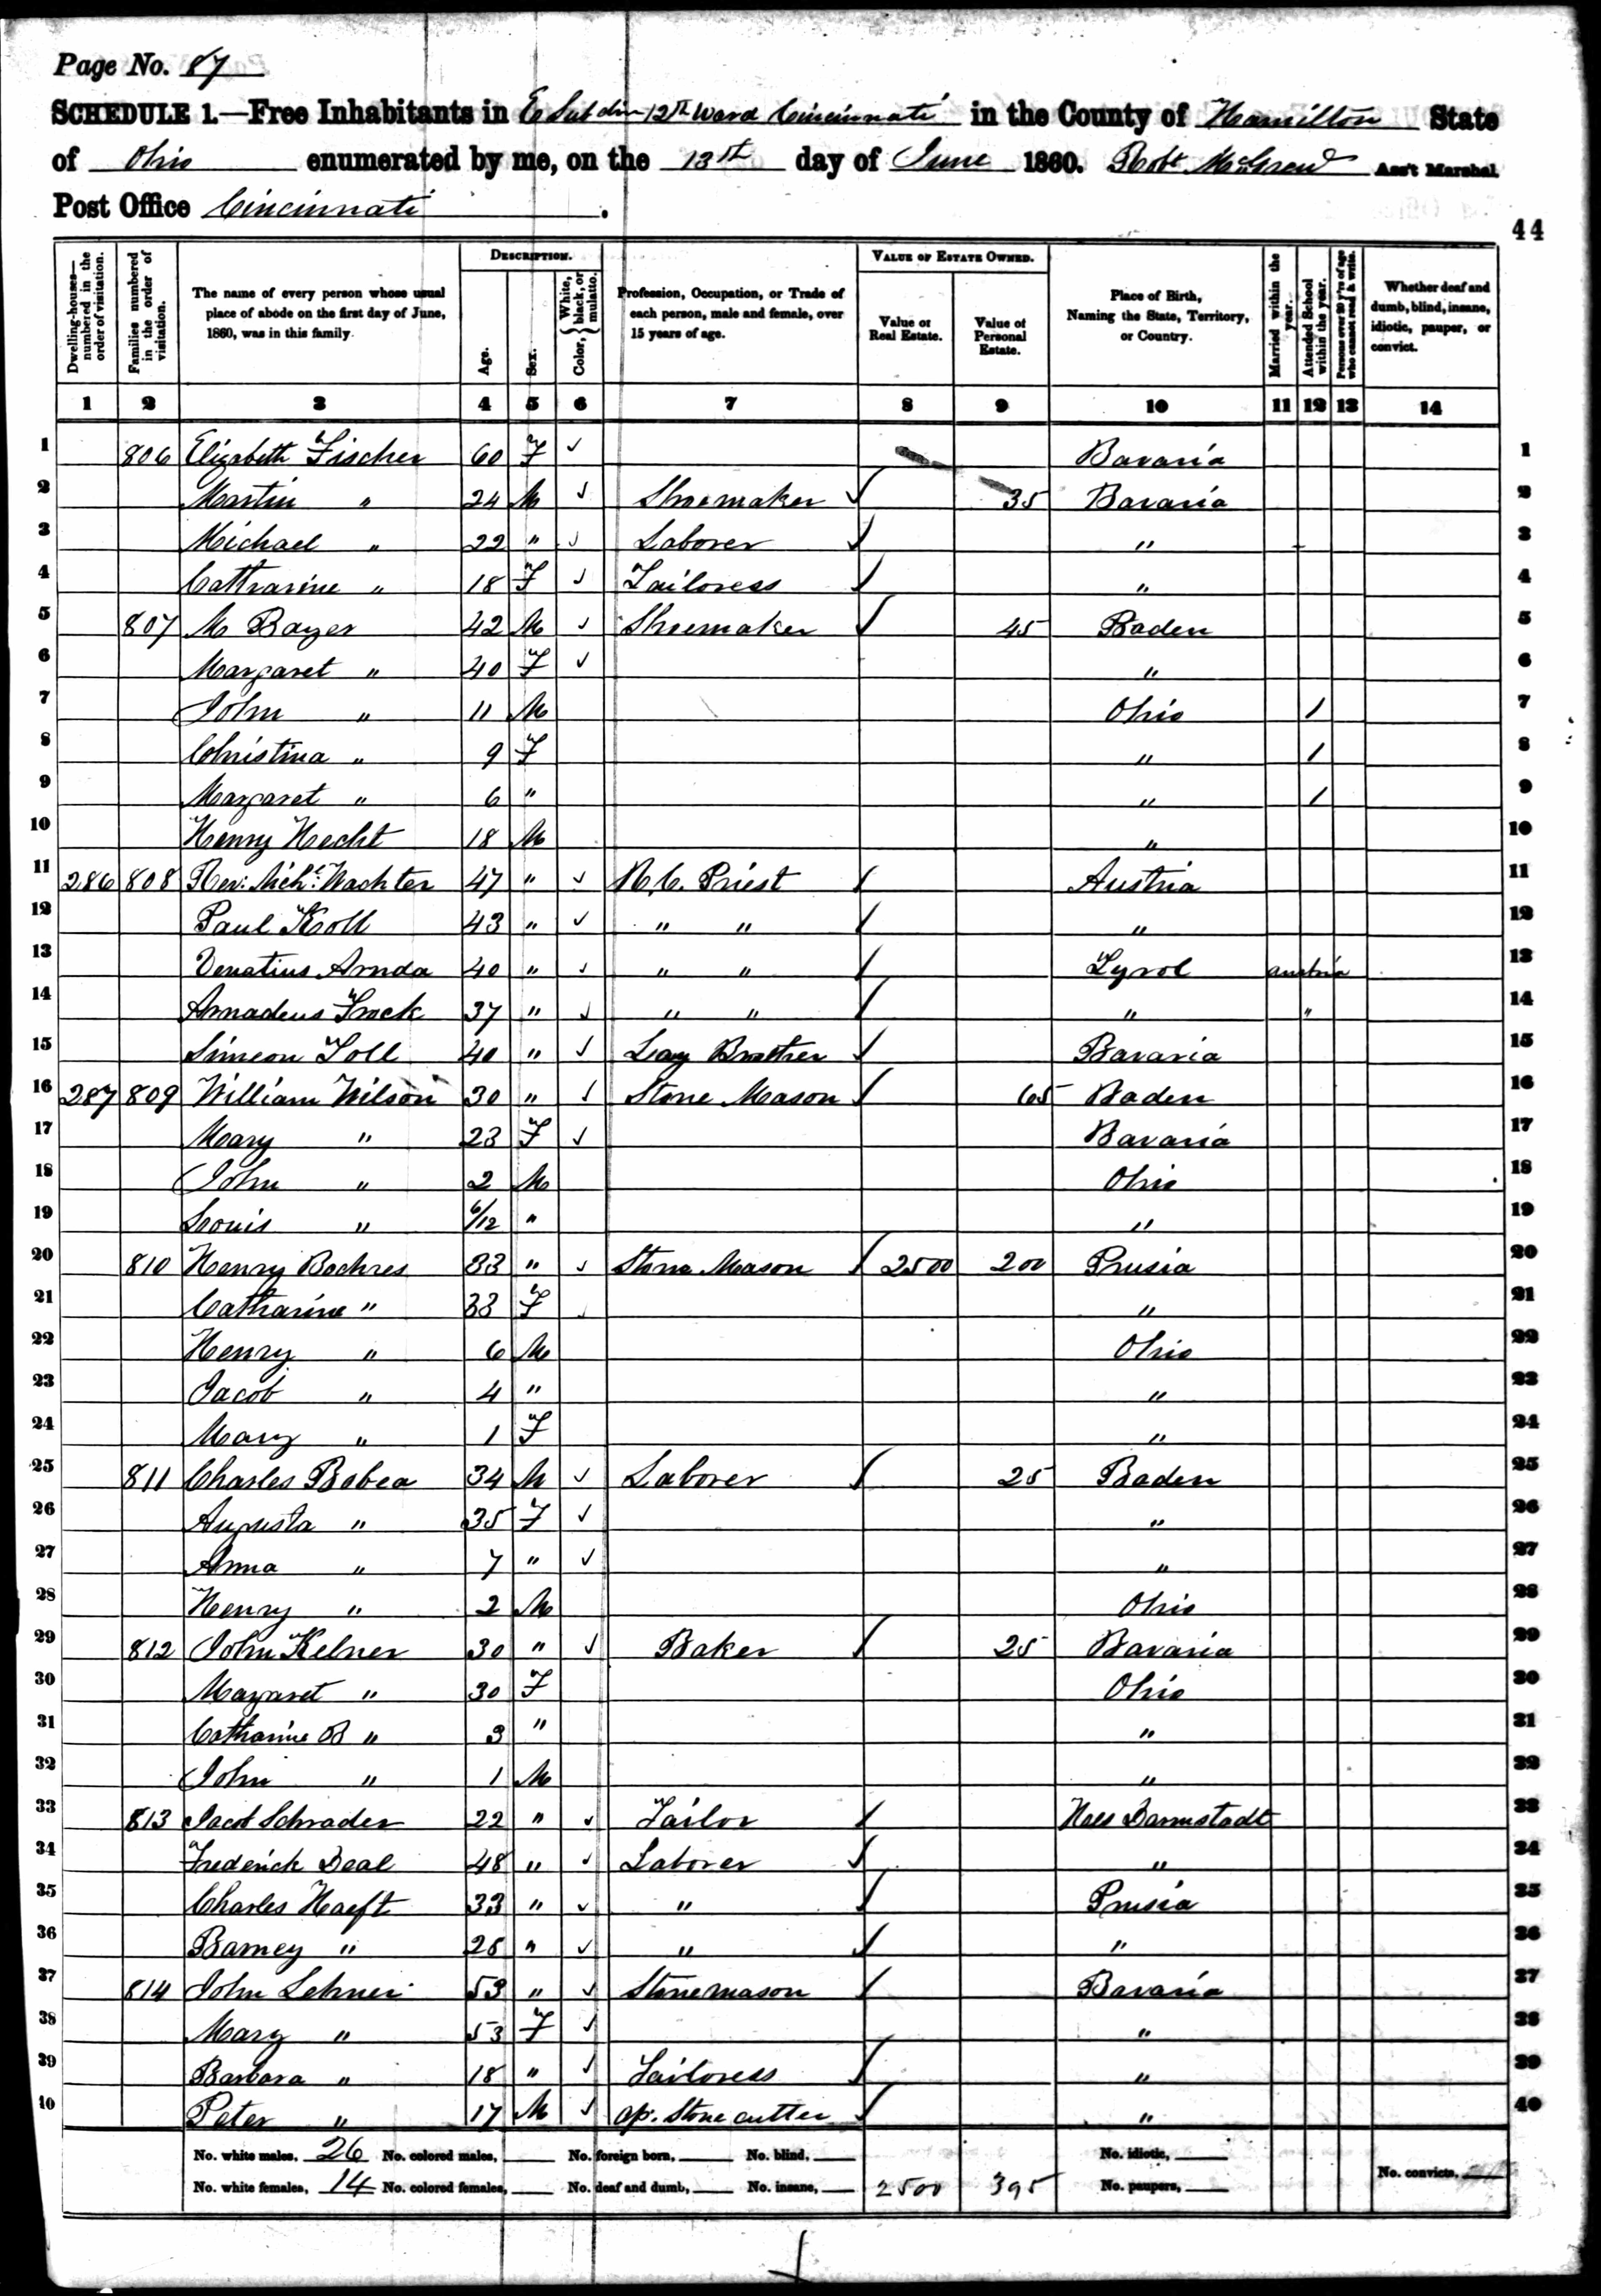 Page No. 87
SCHEDULE 1.—Free Inhabitants in E Sub div 12th Ward Cincinnati in the County of Hamilton State
of Ohio enumerated by me, on the 13th day of June 1860. Robt McGrew Ass't Marshal.
Post Office Cincinnati.
44
Dwelling-houses—numbered in the order of visitation. Families numbered in the order of visitation. The name of every person whose usual place of abode on the first day of June, 1860, was in this family. DESCRIPTION. Age. Sex. Color, White, black, or mulatto. Profession, Occupation, or Trade of each person, male and female, over 15 years of age. VALUE OF ESTATE OWNED. Value of Real Estate. Value of Personal Estate. Place of Birth, Naming the State, Territory, or Country. Married within the year. Attended School within the year. Persons over 20 y'rs of age who cannot read & write. Whether deaf and dumb, blind, insane, idiotic, pauper, or convict.
1 2 3 4 5 6 7 8 9 10 11 12 13 14
1 806 Elizabeth Fischer 60 F ✓ Bavaria 1
2 Martin " 24 M ✓ Shoemaker ✓ 35 Bavaria 2
3 Michael " 22 " ✓ Laborer ✓ " 3
4 Cathrarine " 18 F ✓ Tailoress / " 4
5 807 M Bayer 42 M ✓ Shoemaker ✓ 45 Baden 5
6 Margaret " 40 F ✓ " 6
7 John " 11 M Ohio / 7
8 Christina " 9 F " / 8
9 Margaret " 6 " " / 9
10 Henry Hecht 18 M " 10
11 286 808 Rev: Nich: Wachter 47 " ✓ R.C. Priest / Austria 11
12 Paul Kroll 43 " ✓ " " / " 12
13 Venatius Arnda 40 " ✓ " " / Tyrol austria 13
14 Amadeus Trock 37 " ✓ " " / " " 14
15 Simeon Toll 40 " ✓ Lay Brother ✓ Bavaria 15
16 287 809 William Wilson 30 " ✓ Stone Mason / 65 Baden 16
17 Mary " 23 F ✓ Bavaria 17
18 John " 2 M Ohio 18
19 Louis " 6/12 " " 19
20 810 Henry Bochres 33 " ✓ Stone Mason / 2500 200 Prusia 20
21 Catharine " 33 F ✓ " 21
22 Henry " 6 M Ohio 22
23 Jacob " 4 " " 23
24 Mary " 1 F " 24
25 811 Charles Bobea 34 M ✓ Laborer / 25 Baden 25
26 Augusta " 35 F ✓ " 26
27 Anna " 7 " ✓ " 27
28 Henry " 2 M Ohio 28
29 812 John Kelner 30 " ✓ Baker / 25 Bavaria 29
30 Magaret " 30 F Ohio 30
31 Catharine B " 3 " " 31
32 John " 1 M " 32
33 813 Jacob Schrader 22 " ✓ Tailor / Hess Darmstadt 33
34 Frederick Deal 48 " ✓ Laborer ✓ " 34
35 Charles Haeft 33 " ✓ " / Prusia 35
36 Barney " 25 " ✓ " / " 36
37 814 John Lehner 53 " ✓ Stonemason / Bavaria 37
38 Mary " 53 F ✓ " 38
39 Barbara " 18 " ✓ Tailoress / " 39
10 Peter " 17 M ✓ ap. Stone cutter ✓ " 40
No. white males, 26 No. colored males, No. foreign born, No. blind, No. idiotic,
No. white females, 14 No. colored females, No. deaf and dumb, No. insane, 2500 395 No. paupers, No. convicts,